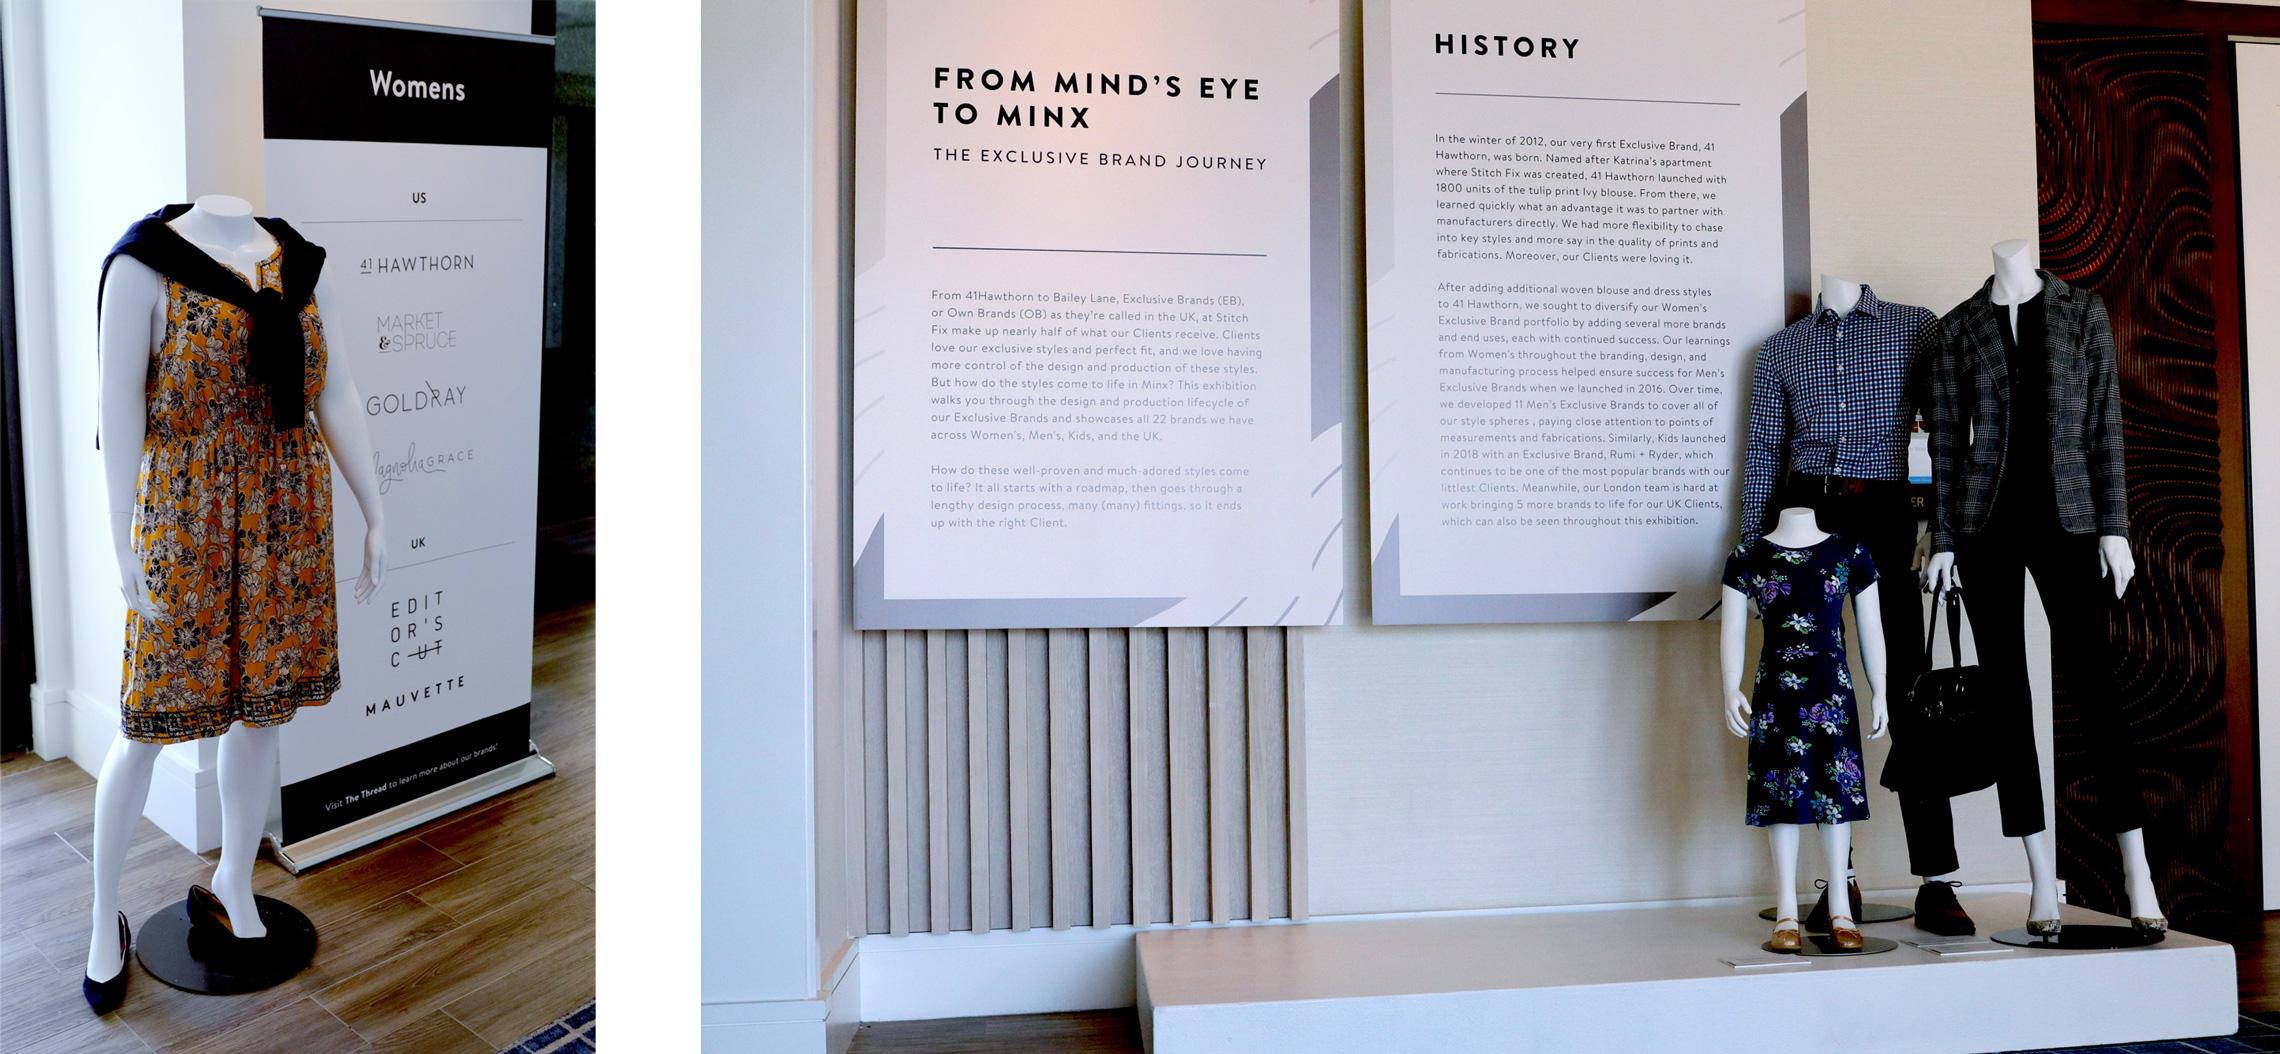 Womens
US
41 HAWTHORN
MARKET
&SPRUCE
GOLDRAY
MagnoliaGRACE
UK
EDIT
OR'S
CUT
MAUVETTE
Visit The Thread to learn more about our brands!
FROM MIND'S EYE
TO MINX
THE EXCLUSIVE BRAND JOURNEY
From 41Hawthorn to Bailey Lane, Exclusive Brands (EB),
or Own Brands (OB) as they're called in the UK, at Stitch
Fix make up nearly half of what our Clients receive. Clients
love our exclusive styles and perfect fit, and we love having
more control of the design and production of these styles.
But how do the styles come to life in Minx? This exhibition
walks you through the design and production lifecycle of
our Exclusive Brands and showcases all 22 brands we have
across Women's, Men's, Kids, and the UK.
How do these well-proven and much-adored styles come
to life? It all starts with a roadmap, then goes through a
lengthy design process, many (many) fittings, so it ends
up with the right Client.
HISTORY
In the winter of 2012, our very first Exclusive Brand, 41
Hawthorn, was born. Named after Katrina's apartment
where Stitch Fix was created, 41 Hawthorn launched with
1800 units of the tulip print Ivy blouse. From there, we
learned quickly what an advantage it was to partner with
manufacturers directly. We had more flexibility to chase
into key styles and more say in the quality of prints and
fabrications. Moreover, our Clients were loving it.
After adding additional woven blouse and dress styles
to 41 Hawthorn, we sought to diversify our Women's
Exclusive Brand portfolio by adding several more brands
and end uses, each with continued success. Our learnings
from Women's throughout the branding, design, and
manufacturing process helped ensure success for Men's
Exclusive Brands when we launched in 2016. Over time,
we developed 11 Men's Exclusive Brands to cover all of
our style spheres , paying close attention to points of
measurements and fabrications. Similarly, Kids launched
in 2018 with an Exclusive Brand, Rumi + Ryder, which
continues to be one of the most popular brands with our
littlest Clients. Meanwhile, our London team is hard at
work bringing 5 more brands to life for our UK Clients,
which can also be seen throughout this exhibition.
ER